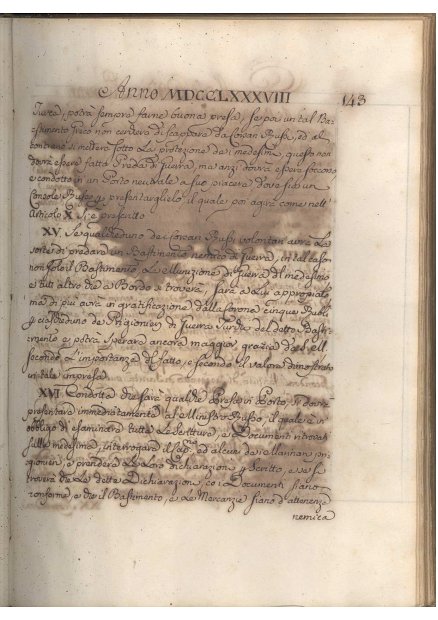 Anno MDCCLXXXVIII
143
Turca, potrà sempre farne buona presa, se poi un tal Ba-
stimento Greco non cerderà di scappare da Corsari Russi, ed al
contrario si metterà sotto la protezione de' medesimi, questo non
dovrà essere fatto Preda di Guerra, ma anzi dovrà essere soccorso
e condotto in un Porto neutrale a suo piacere dove sia un
Console Russo, e presentarglielo, il quale poi agirà come nell'
Articolo X. si è prescritto
XV. Se qualcheduno de' Corsari Russi volontari avrà la
sorte di predare un Bastimento nemico di Guerra, in tal caso
non solo il Bastimento, le Munizioni di Guerra del medesimo
e tutti altro che a Bordo si troverà, sarà a Lui appropriato
ma di più avrà in gratificazione dalla Corona cinque Rubli
p ciascheduno de' Prigionieri di Guerra Turchi del detto Basti-
mento e potrà sperare ancora maggior grazia da
secondo l'importanza del fatto, e secondo il valore dimostrato
in tale impresa.
XVI. Condotta che sarà qualche Presa in Porto, si dovrà
presentare immediatamente al Ministro Russo, il quale è in
obbligo di esaminare tutte le Scritture, e Documenti ritrovati
sulle medesima, interrogare il Capno ed alcuni de' Marinari pri-
gionieri, e prendere le loro dichiarazioni p scritto, e se si
troverà che le dette Dichiarazioni, co i Documenti siano
conforme, e che il Bastimento, e le Mercanzie siano d'attenenza
nemica